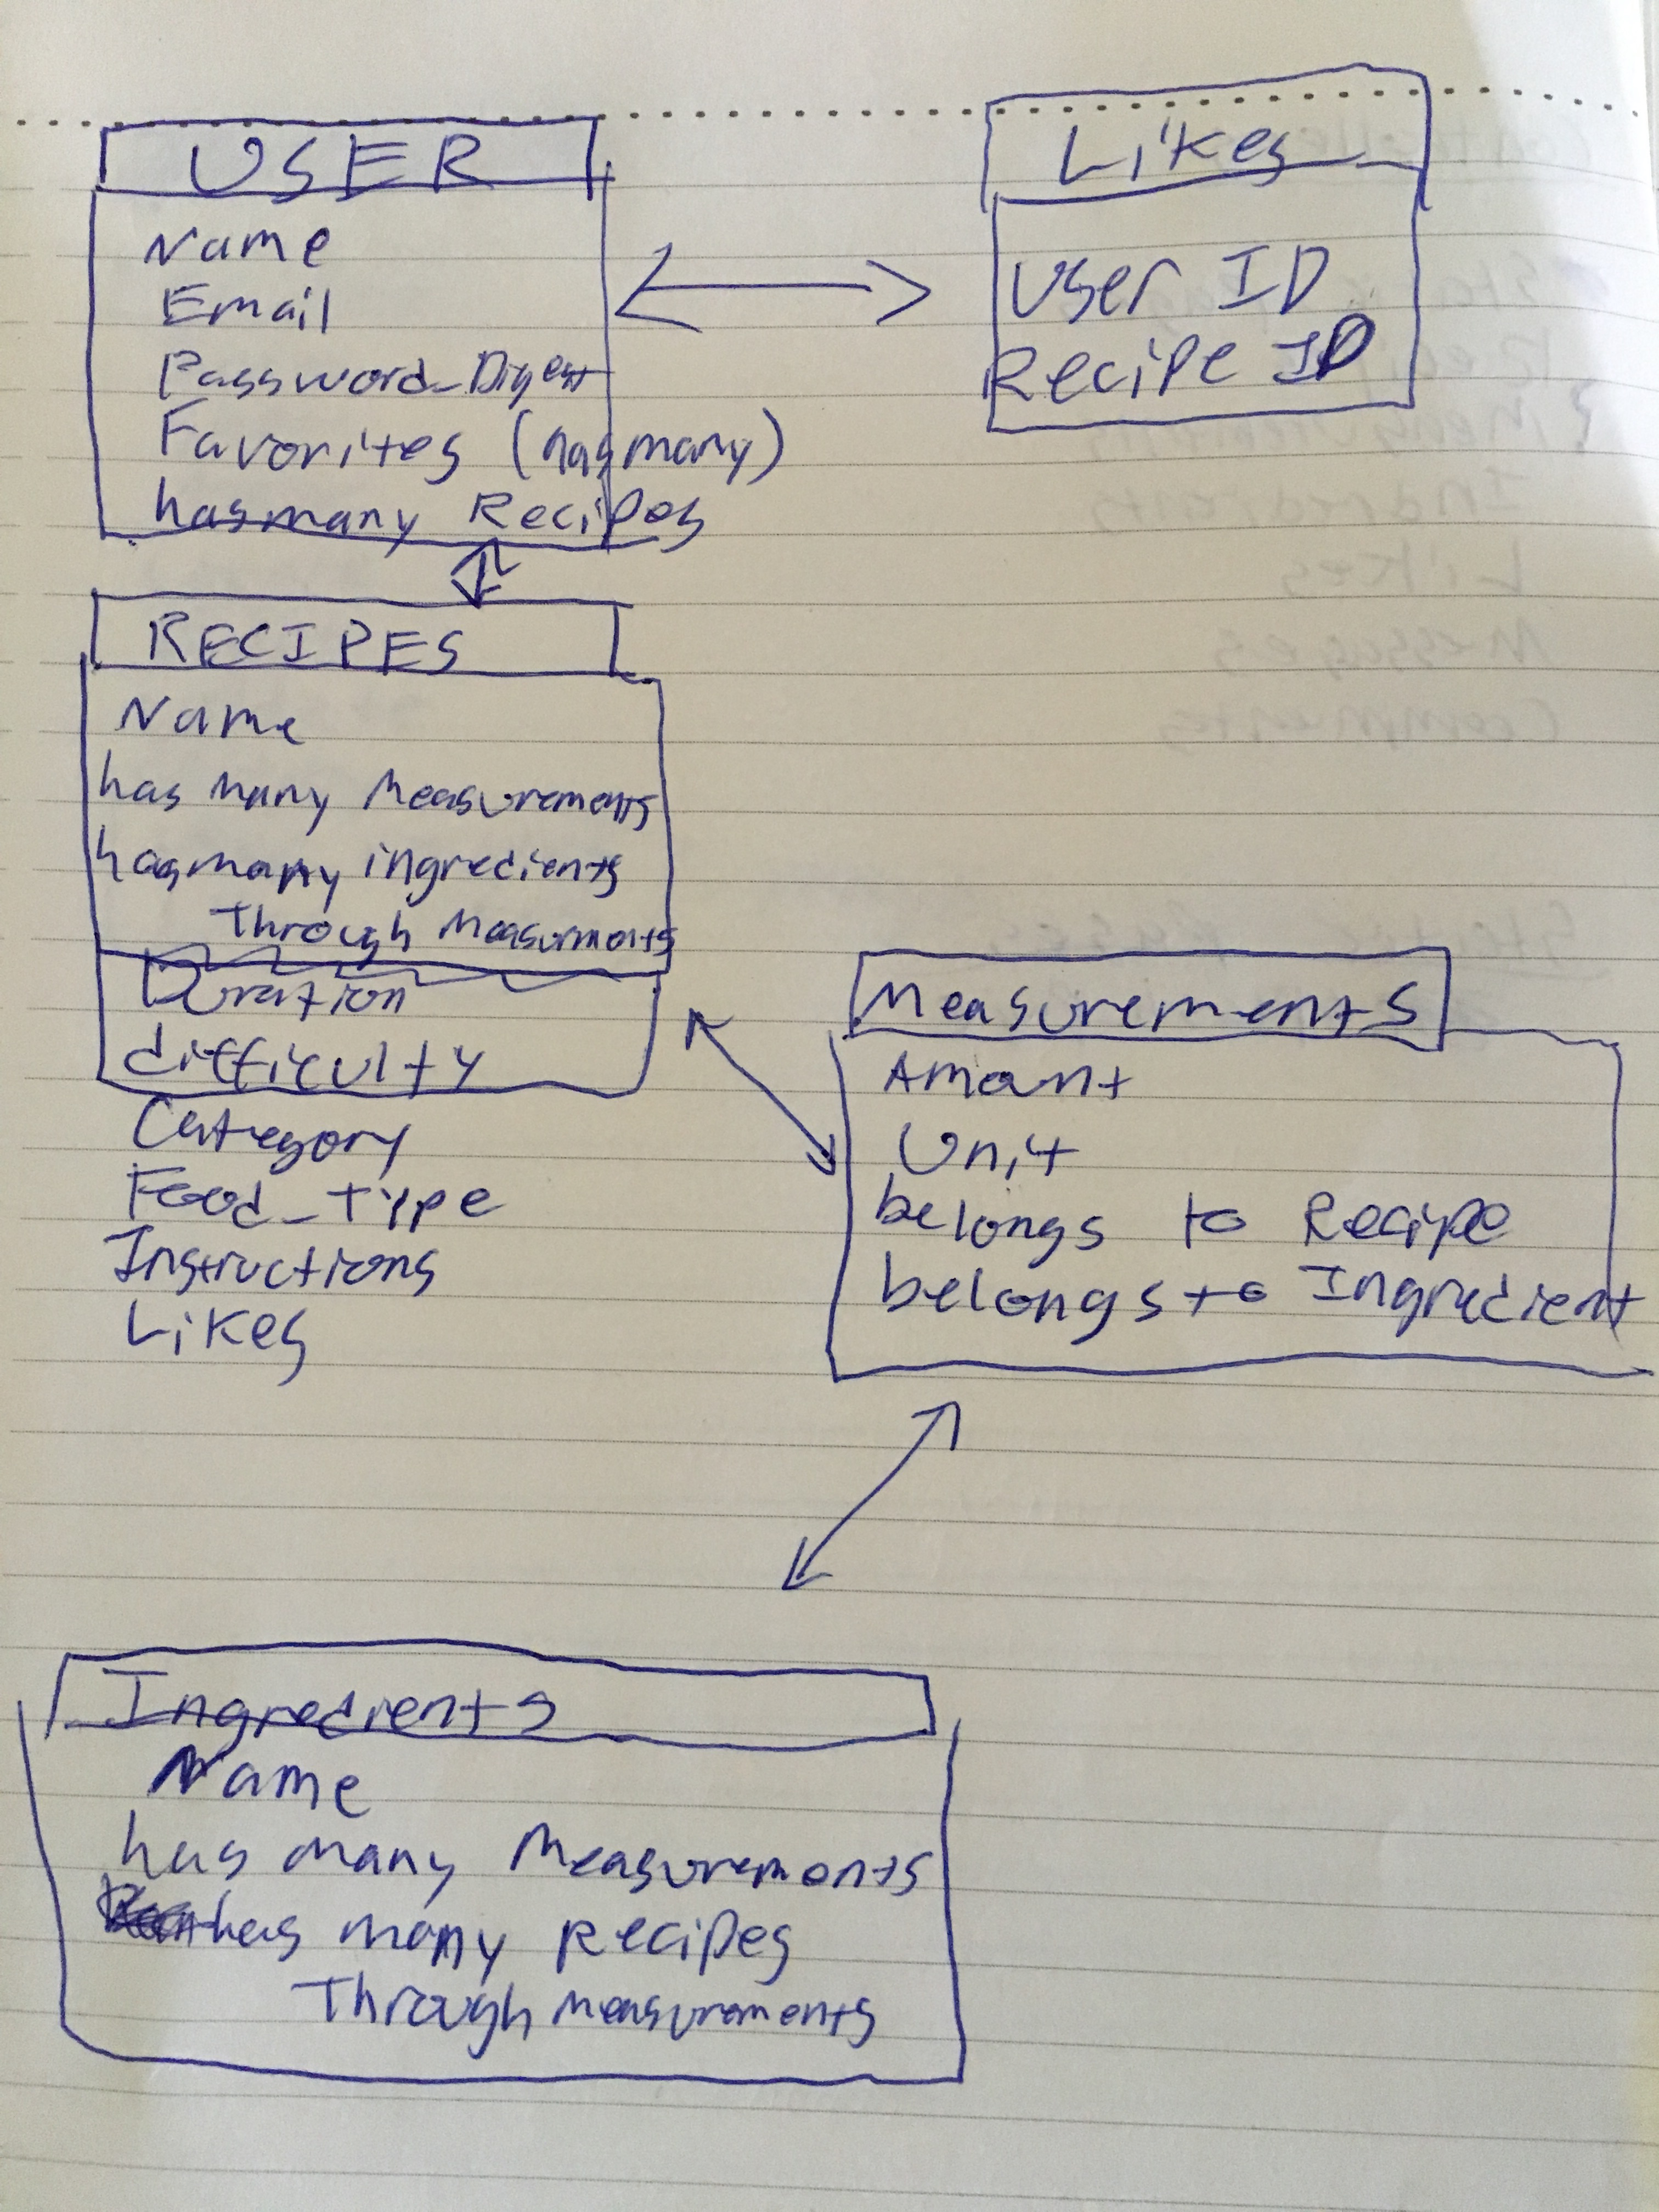 USER
Name
Email
Password_Digest
Favorites (hasmany)
hasmany Recipes
Likes
User ID
Recipe ID
RECIPES
Name
has many Measurements
hasmany ingredients
Through Measurments
Duration
difficulty
Category
Food_Type
Instructions
Likes
Measurements
Amount
Unit
belongs to Recipe
belongs to Ingredient
Ingredients
Name
has many Measurements
has many Recipes
Through measurements